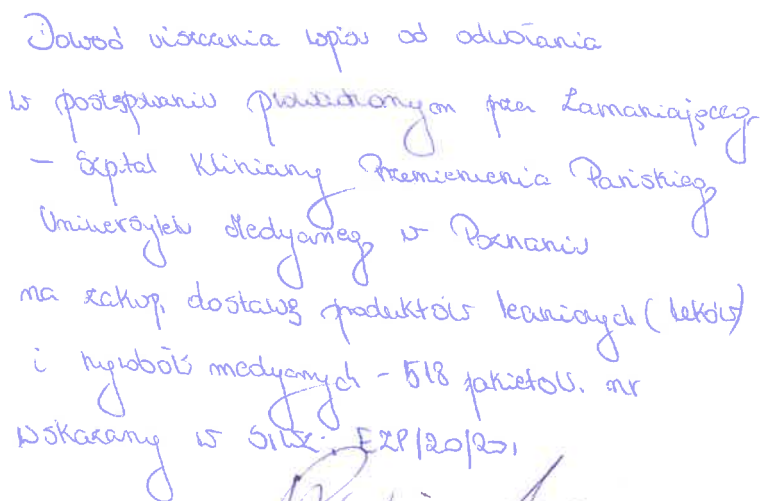 Dowód uiszczenia wpisu od odwołania
w postępowaniu prowadzonym przez Zamawiającego
- Szpital Kliniczny Przemienienia Pańskiego
Uniwersytetu Medycznego w Poznaniu
na zakup, dostawę produktów leczniczych (leków)
i wyrobów medycznych - 518 pakietów. nr
wskazany w SIWZ: EZP/20/201